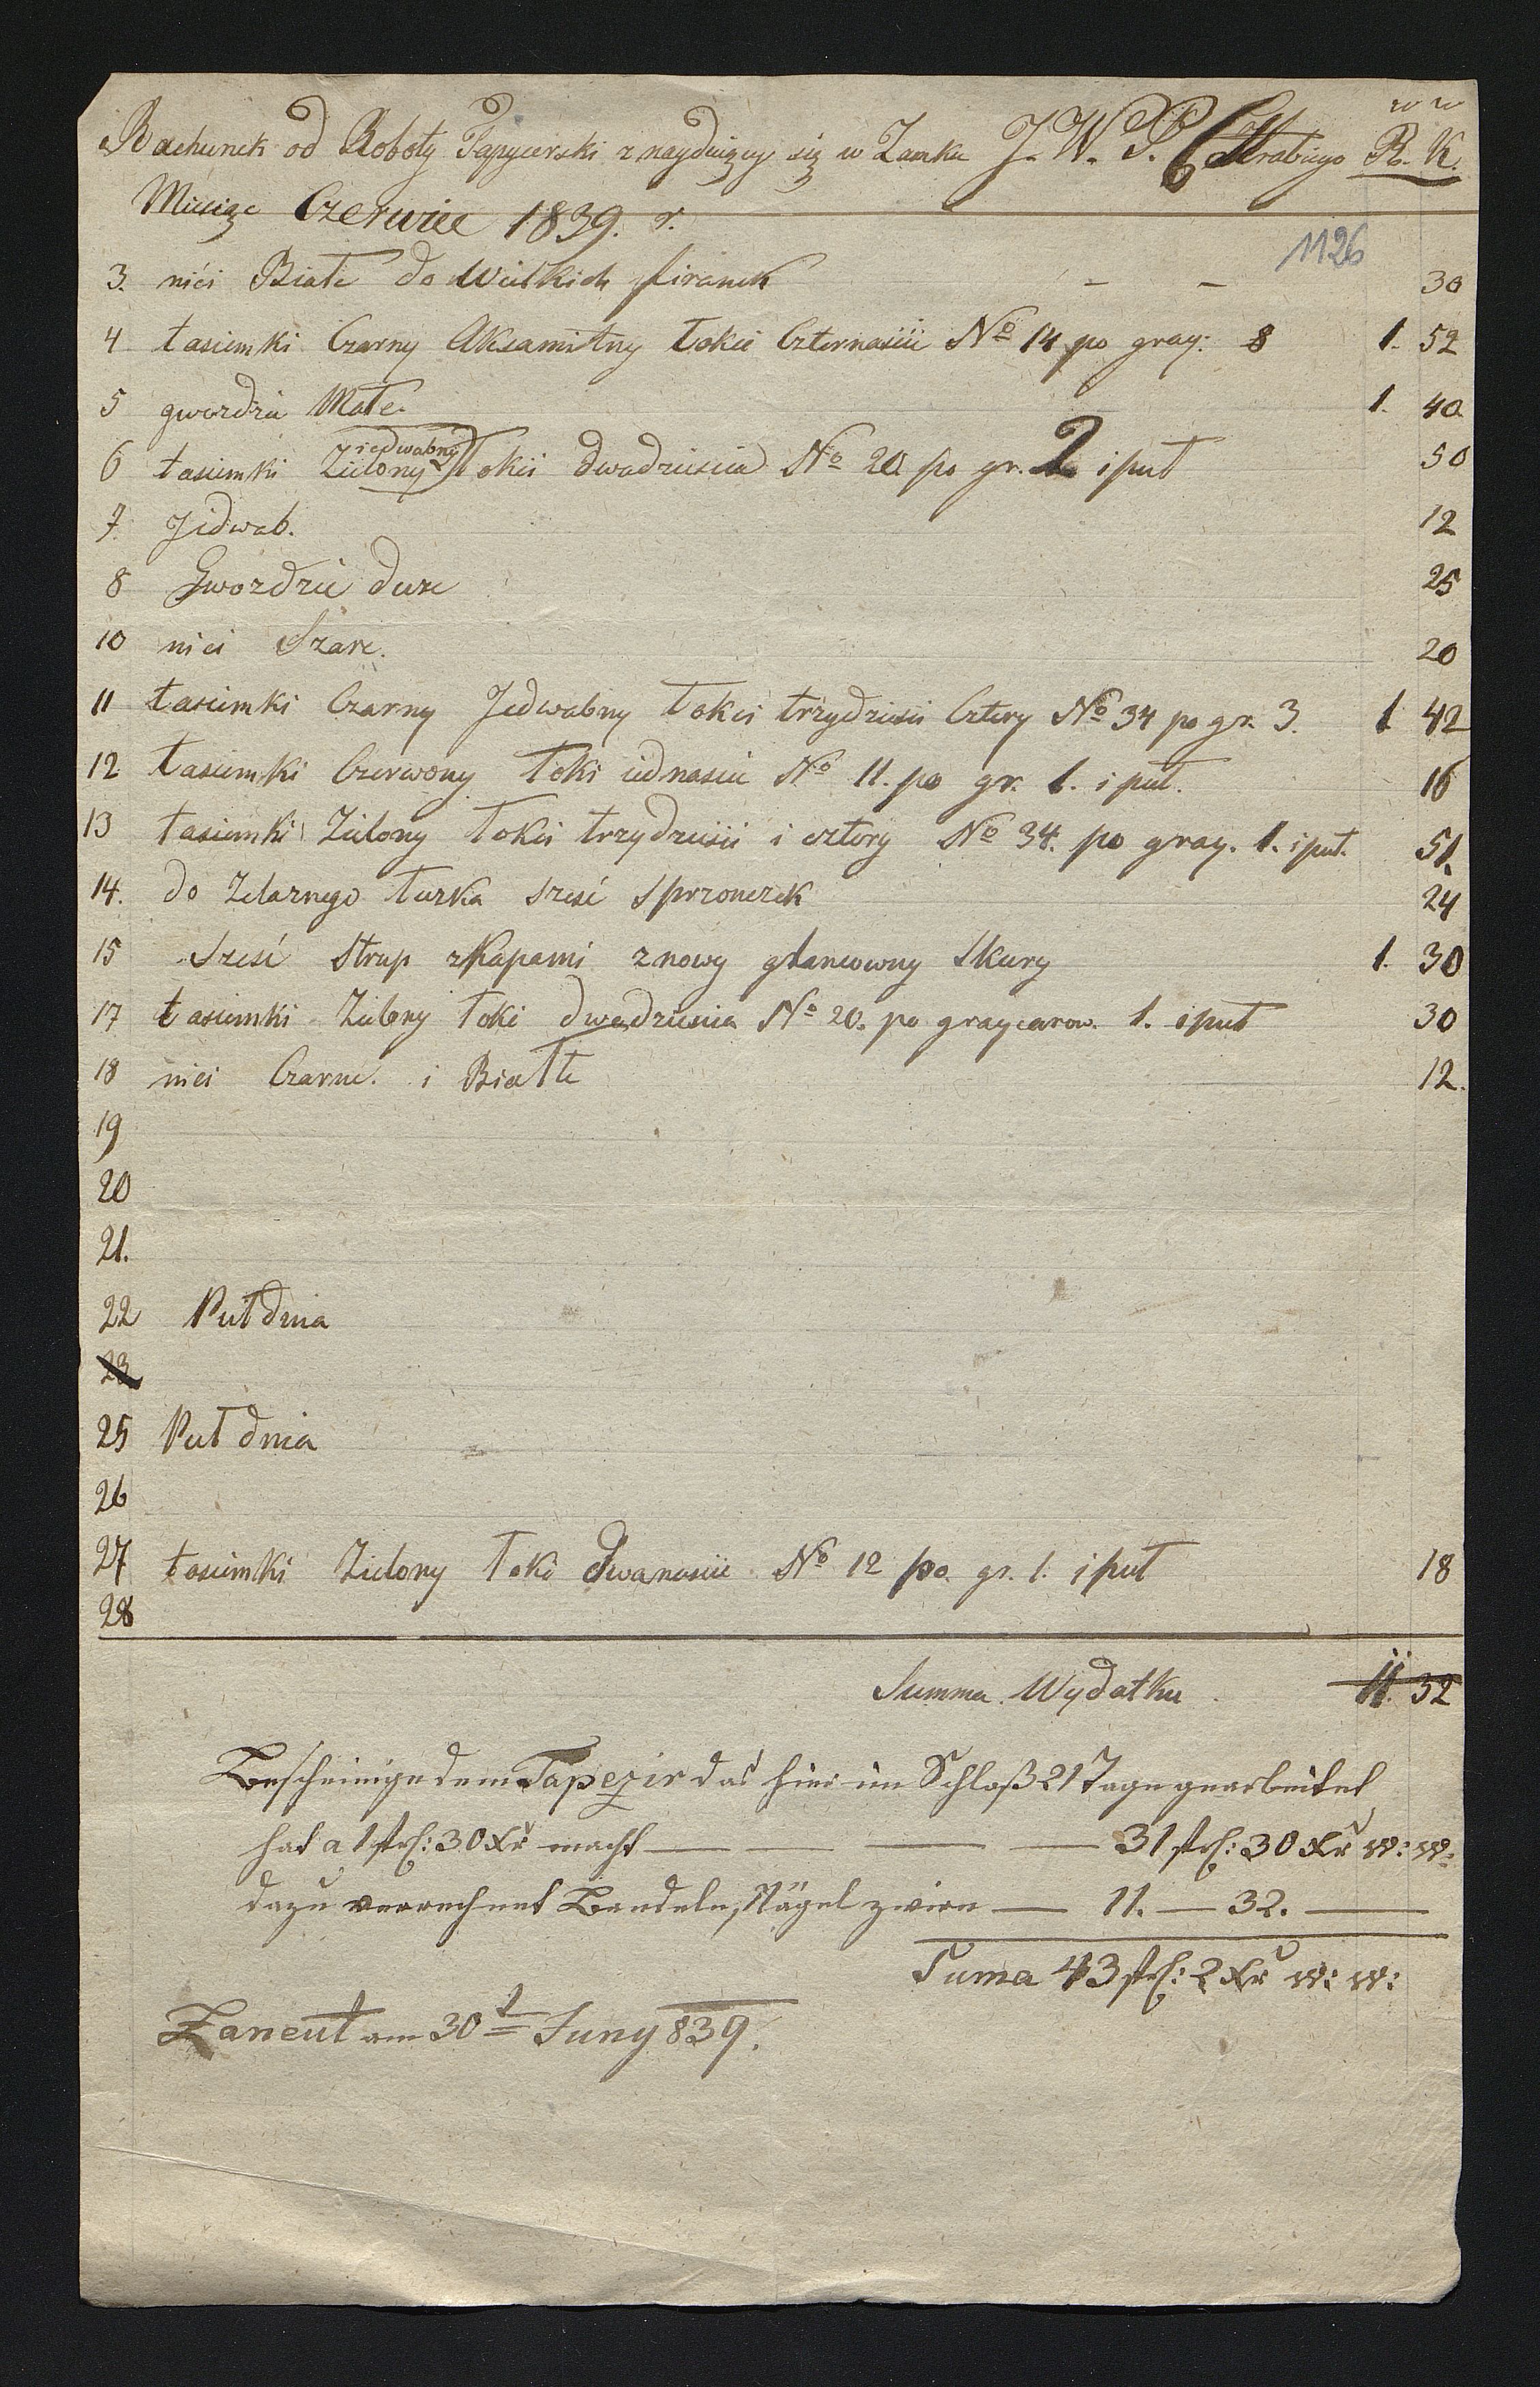 w w
Rachunek od Roboty Tapycerski znayduiący się w Zamku J. W. P. Hrabiego R. K.
Miesiąc Czerwiec 1839. r.
1126
3. nići Białe do Wielkich firanek - - 30
4 tasiemki Czarny Aksamitny Łokci Czternaście No 14 po gray: 8 1. 52
5 gwozdzie Małe. 1. 40
iedwabny
6 tasiemki Zielony Łokci dwadziescia No 20 po gr. 2 i puł 50
7. Jedwab. 12
8 Gwozdzie duże 25
10 nici Szare. 20
11 tasiemki Czarny Jedwabny Łokci trzydzieści Cztery No 34 po gr. 3. 1 42
12 tasiemki Czerwony Łoki iednascie No 11. po gr. 1. i puł. 16
13 tasiemki Zielony Łokci trzydzieści i cztory No 34. po gray. 1. i puł. 51.
14. do Zelaznego Łuzka sześć sprzonczek 24
15 Sześć Strup z Kapami z nowy glancowny Skury 1. 30
17 tasiemki Zielony Łoki dwadziescia No 20. po graycarow. 1. i puł 30
18 nici Czarne. i Białłe 12.
19
20
21.
22 Puł dnia
23
25 Puł dnia
26
27 tasiemki Zielony Łoki dwanaście No 12 po. gr. 1. i puł 18
28
Summa. Wydatku 11. 32
Bescheinige dem Tapezir das hier im Schloß 21 Tage gearbeitet
hat a 1 fl: 30 Xr macht — — — — 31 fl: 30 Xr W: W:
dazu verrechnet Bandeln, Nägel zwirn — 11. — 32. —
Suma 43 fl: 2 Xr W: W:
Łancut am 30t Juny 839.